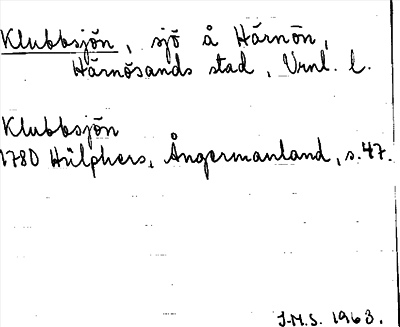 Klubbsjön, sjö å Härnön,
Härnösands stad, Vrnl. l.
Klubbsjön
1780 Hülphers, Ångermanland, s. 47.
J.M.S. 1963.